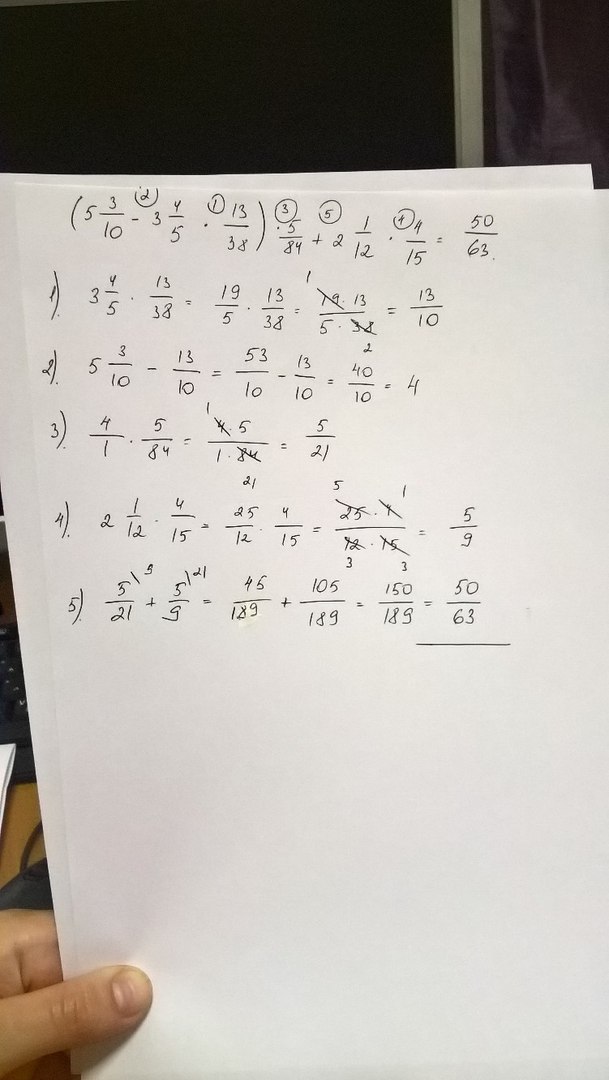 (5 3/10 - 3 4/5 · 13/38) · 5/84 + 2 1/12 · 4/15 = 50/63.
1). 3 4/5 · 13/38 = 19/5 · 13/38 = 19·13/5·38 = 13/10
2). 5 3/10 - 13/10 = 53/10 - 13/10 = 40/10 = 4
3). 4/1 · 5/84 = 4·5/1·84 = 5/21
4). 2 1/12 · 4/15 = 25/12 · 4/15 = 25·4/12·15 = 5/9
5). 5\9/21 + 5\21/9 = 45/189 + 105/189 = 150/189 = 50/63